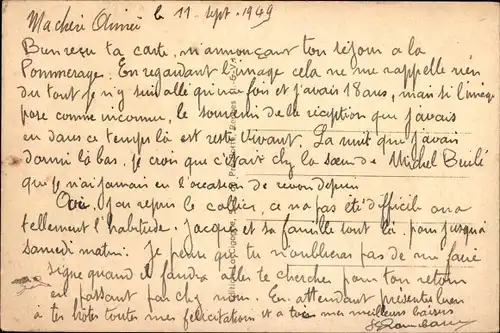 Ma chère Aimée le 11 sept. 1949
Bien reçu ta carte, m'annonçant ton séjour a la
Pommeraye. En regardant l'image cela ne me rappelle rien
du tout je n'y suis allé qu'une fois et j'avais 18 ans, mais si l'image
passe comme inconnue, le souvenir de la réception que j'avais
eu dans ce temps là est resté vivant. La nuit que j'avais
dormi là bas, je crois que c'était chez la sœur de Michel
qui je n'ai jamais eu l'occasion de revoir depuis
Oui, j'ai repris le collier, ce n'a pas été difficile on a
tellement l'habitude. Jacques et sa famille sont là pour jusqu'à
samedi matin. Je pense que tu n'oublieras pas de me faire
signe quand il faudra aller te chercher pour ton retour
est passant par chez nous. En attendant présentes bien
à tes hôtes toutes mes félicitations et a toi mes meilleurs baisers